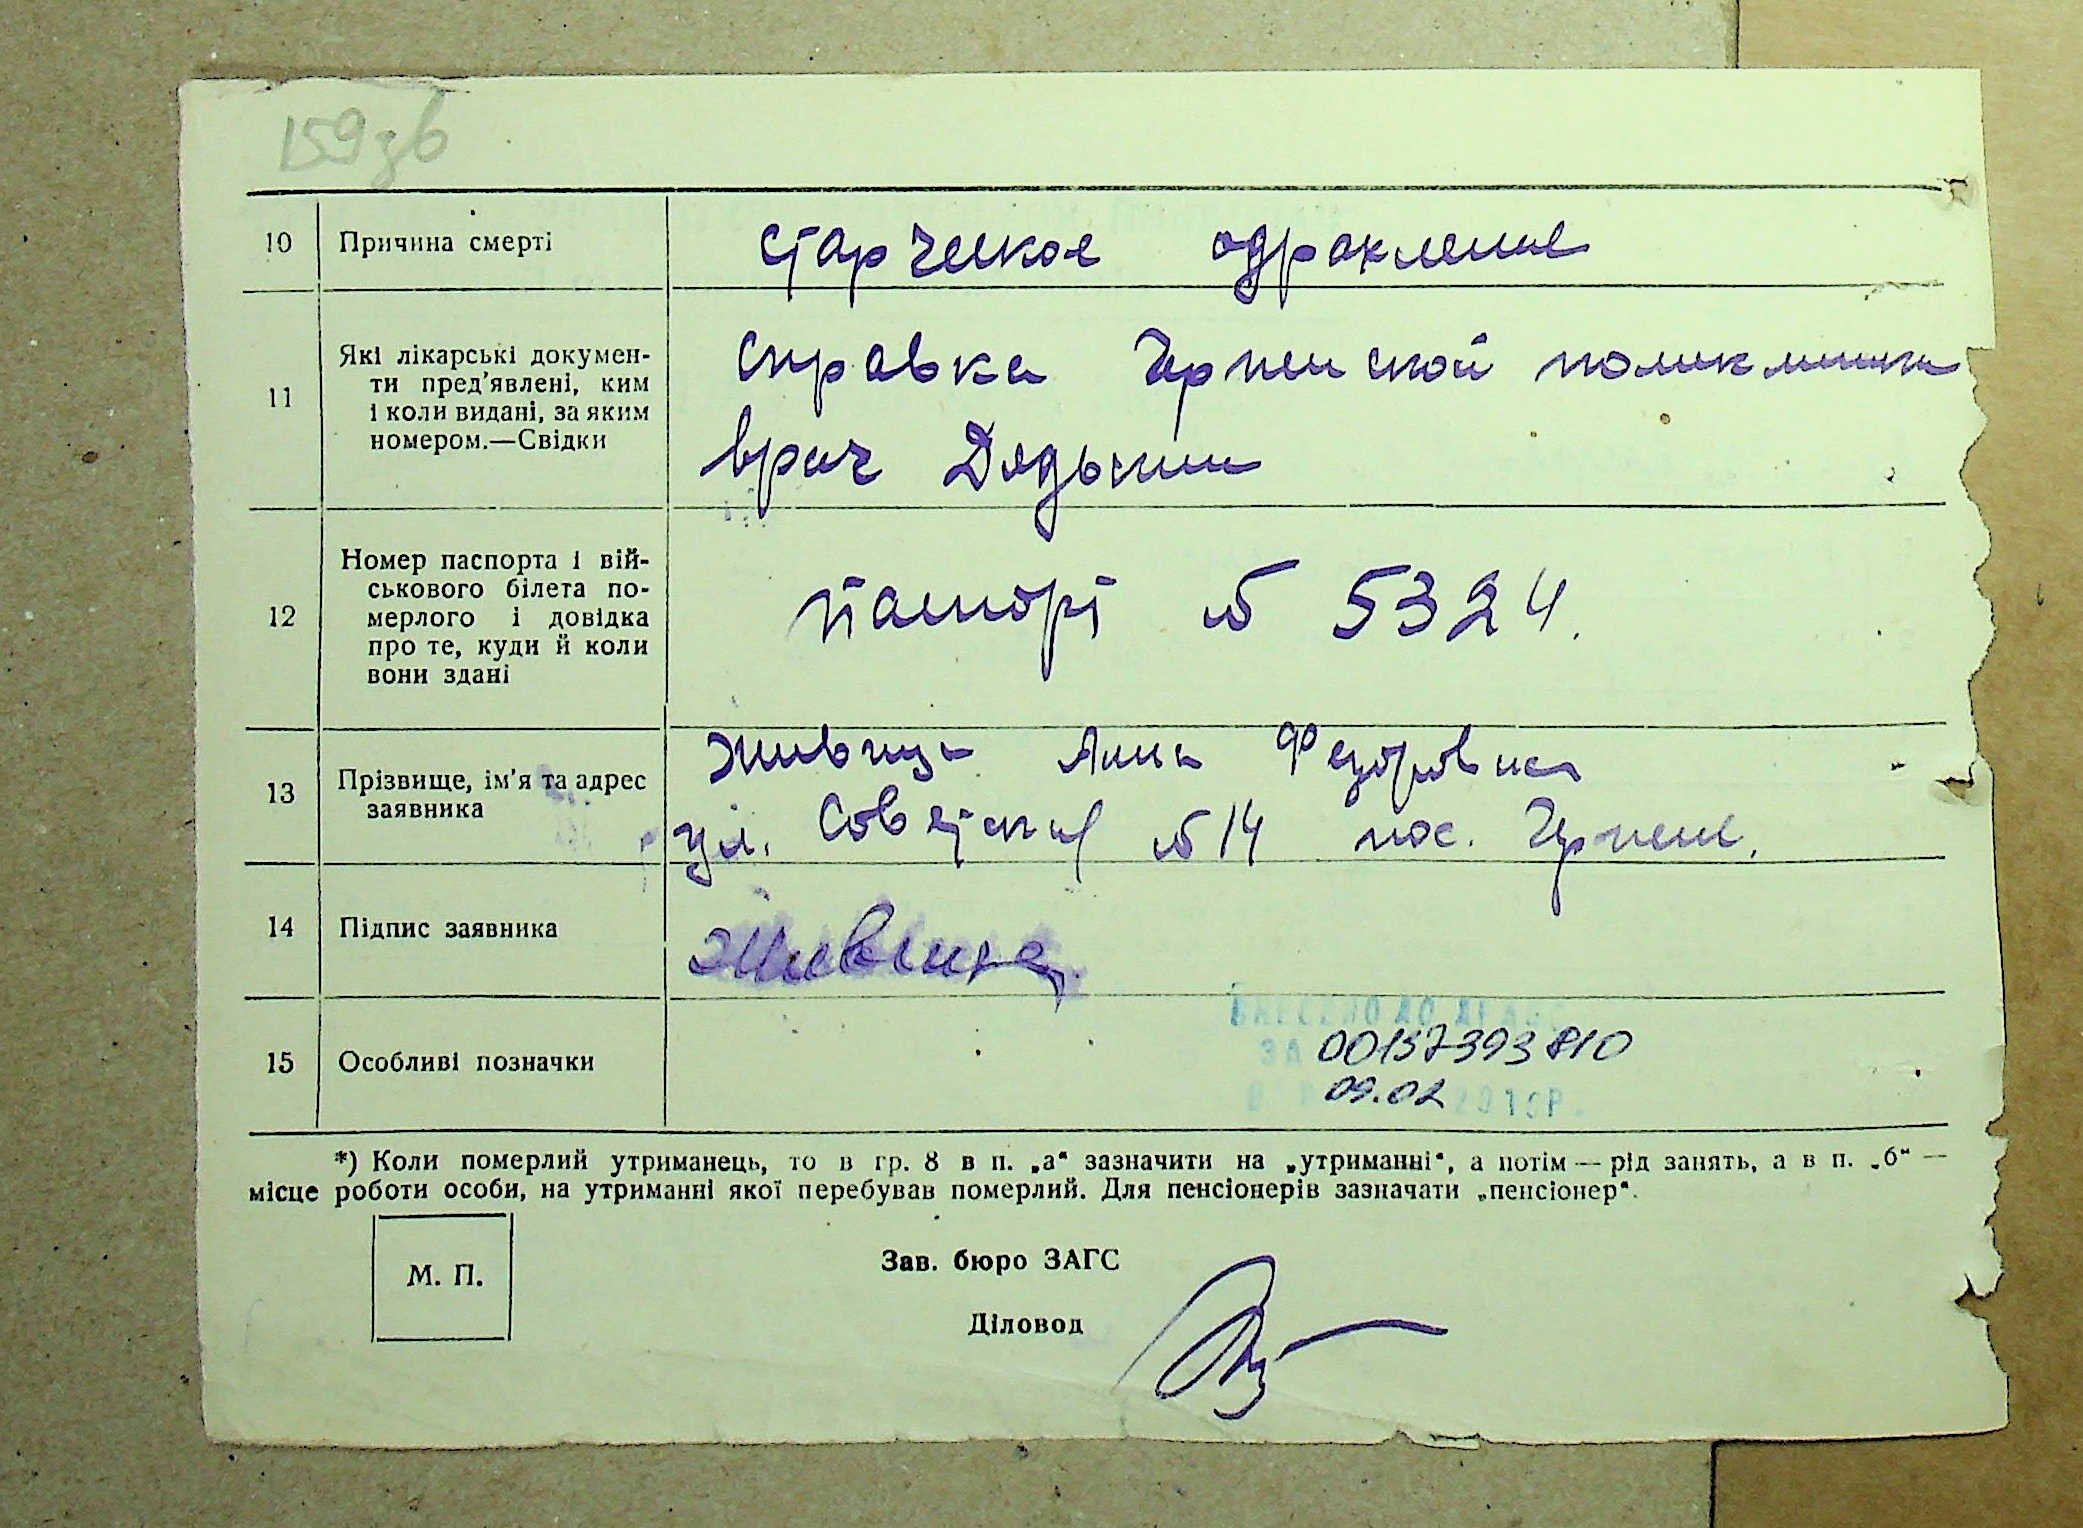 159зв
10 Причина смерті старческое одряхление
11 Які лікарські документи пред'явлені, ким і коли видані, за яким номером.—Свідки
справка Ирпенской поликлиники
врач Дядькин
12 Номер паспорта і військового білета померлого і довідка про те, куди й коли вони здані
паспорт № 5324.
13 Прізвище, ім'я та адрес заявника
Живица Анна Федоровна
ул. Советская №14 пос. Ирпень.
14 Підпис заявника Живиця
15 Особливі позначки
ВНЕСЕНО ДО ДРАЦС
ЗА 00157393810
09.02
*) Коли померлий утриманець, то в гр. 8 в п. „а“ зазначити на „утриманні“, а потім — рід занять, а в п. „б“ —
місце роботи особи, на утриманні якої перебував померлий. Для пенсіонерів зазначати „пенсіонер“.
М. П.
Зав. бюро ЗАГС
Діловод